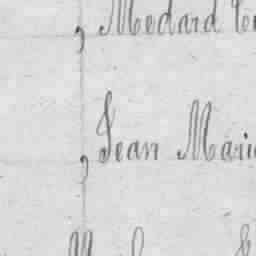 , Medard
, Jean Marie